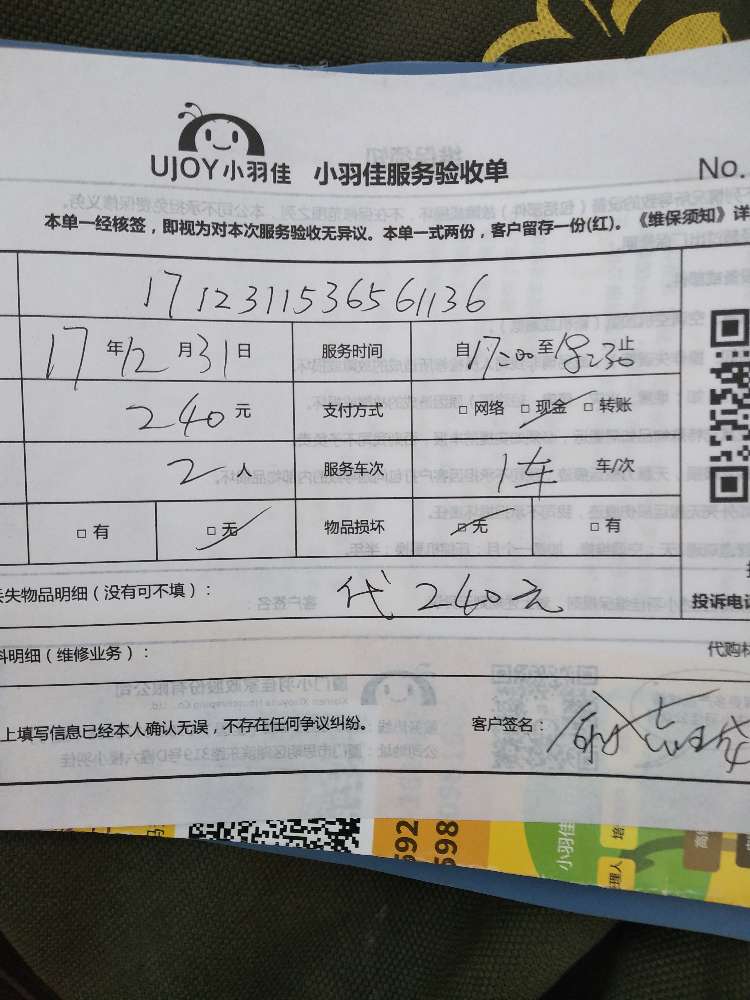 UJOY小羽佳 小羽佳服务验收单
No.
本单一经核签，即视为对本次服务验收无异议。本单一式两份，客户留存一份(红)。《维保须知》详
1712311536561136
17年12月31日 服务时间 自17:00至18:30止
240元 支付方式 □网络 □现金 □转账
2人 服务车次 1车 车/次
□有 □无 物品损坏 □无 □有
失物品明细（没有可不填）： 代240元
投诉电话
料明细（维修业务）：
代购材
上填写信息已经本人确认无误，不存在任何争议纠纷。 客户签名：
592
598
小羽佳